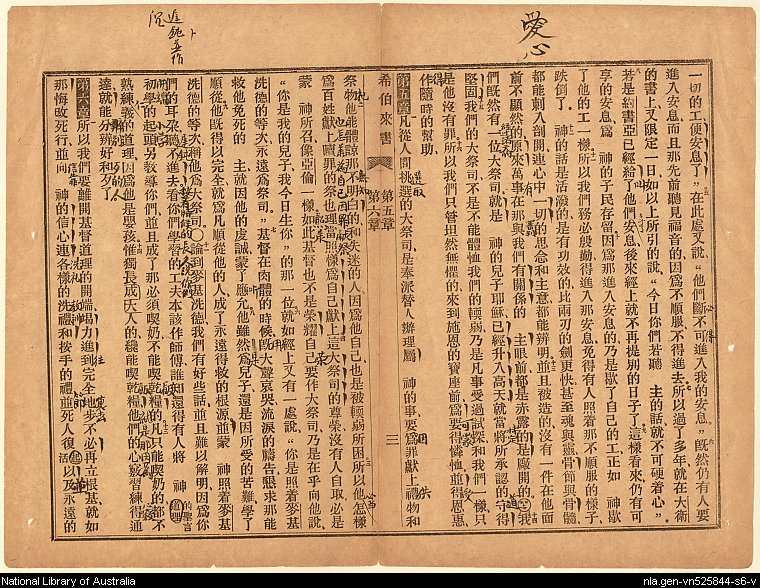 愛心
一切的工便安息了”在此處又說“他們斷不可進入我的安息”既然仍有人要
進入安息而且那先前聽見福音的因爲不順服不得進去所以過了多年就在大衛
的書上又限定一日如以上所引的說“今日你們若聽 主的話就不可硬着心”
若是約書亞已經給了他們安息後來經上就不再提別的日子了這樣看來仍有可
享的安息爲 神的子民存留因爲那進入安息的乃是歇了自己的工正如 神歇
了他的工一樣所以我們務必慇勤得進入那安息免得有人照着那不順服的樣子
跌倒了 神的話是活潑的是有功效的比兩刃的劍更快甚至魂與靈骨節與骨髓
都能刺入剖開連心中一切的思念和主意都能辨明並且被造的沒有一件在他面
前不顯然的原來萬事在那與我們有關係的 主眼前都是赤露的是敞開的我
們旣然有一位大祭司就是 神的兒子耶穌已經升入高天就當將所承認的守得
堅固我們的大祭司不是不能體恤我們的軟弱乃是凡事受過試探和我們一樣只
是他沒有罪所以我們只管坦然無懼的來到施恩的寶座前爲要得憐恤並得恩惠
作隨時的幫助
第五章凡從人間挑選的大祭司是奉派替人辦理屬 神的事要爲罪獻上禮物和
希伯來書 第五章 第六章 三
祭物他能體諒那不知的和失迷的人因爲他自己也是被輭弱所困所以他怎樣
爲百姓獻上贖罪的祭也理當照樣爲自己獻上這大祭司的尊榮沒有人自取必是
蒙 神所召像亞倫一樣如此基督也不是榮耀自己要作大祭司乃是在乎向他說
“你是我的兒子我今日生你”的那一位就如經上又有一處說“你是照着麥基
洗德的等次永遠爲祭司”基督在肉體的時候旣大聲哀哭流淚的禱告懇求那能
救他免死的 主就因他的虔誠蒙了應允他雖然爲兒子還是因所受的苦難學了
順從他旣得以完全就爲凡順從他的人成了永遠得救的根源並蒙 神照着麥基
洗德的等次稱他爲大祭司論到麥基洗德我們有好些話並且難以解明因爲你
們的耳朶聽不進去看你們學習的工夫本該作師傅誰知還得有人將 神的聖言
初學的起頭另敎導你們並且成了那必須喫奶不能喫乾糧的凡只能喫奶的都不
熟練義的道理因爲他是嬰孩惟獨長成大人的纔能喫乾糧他們的心竅習練得通
達就能分辨好和歹了
第六章所以我們要離開基督道理的開端竭力進到完全地步不必再立根基就如
那悔改死行並向 神的信心連各樣的洗禮和按手的禮並死人復活以及永遠的
National Library of Australia
nla.gen-vn525844-s6-v